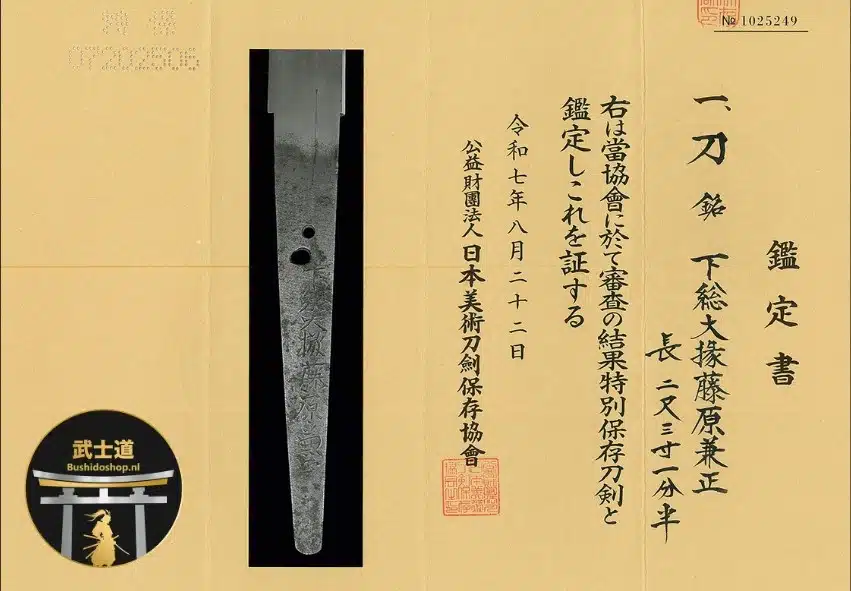 № 1025249
鑑定書
一、刀 銘 下総大掾藤原兼正
長二尺三寸一分半
右は當協會に於て審査の結果特別保存刀剣と
鑑定しこれを証する
令和七年八月二十二日
公益財團法人日本美術刀劍保存協會
07202506
武士道
Bushidoshop.nl